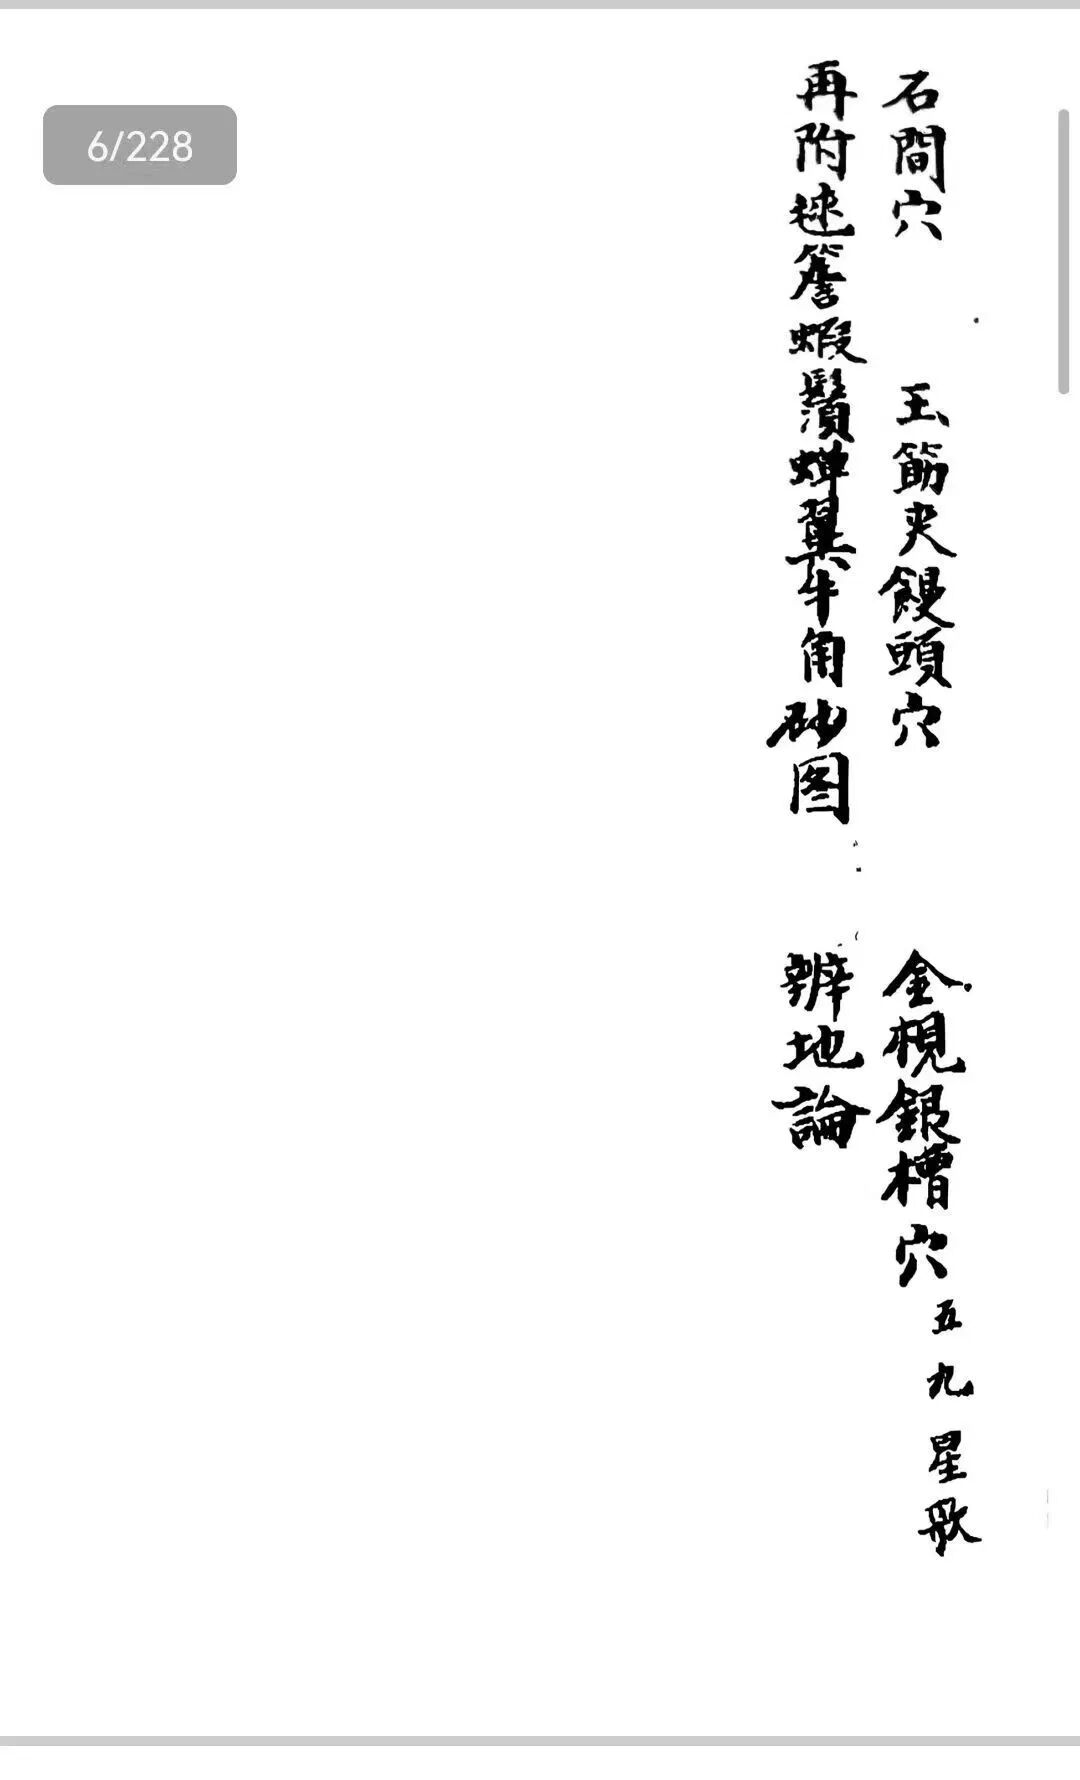 6/228
石間穴 玉筯夾饅頭穴 金槻銀槽穴 五九星歌
再附毬簷蝦鬚蟬翼牛角砂图 辨地論